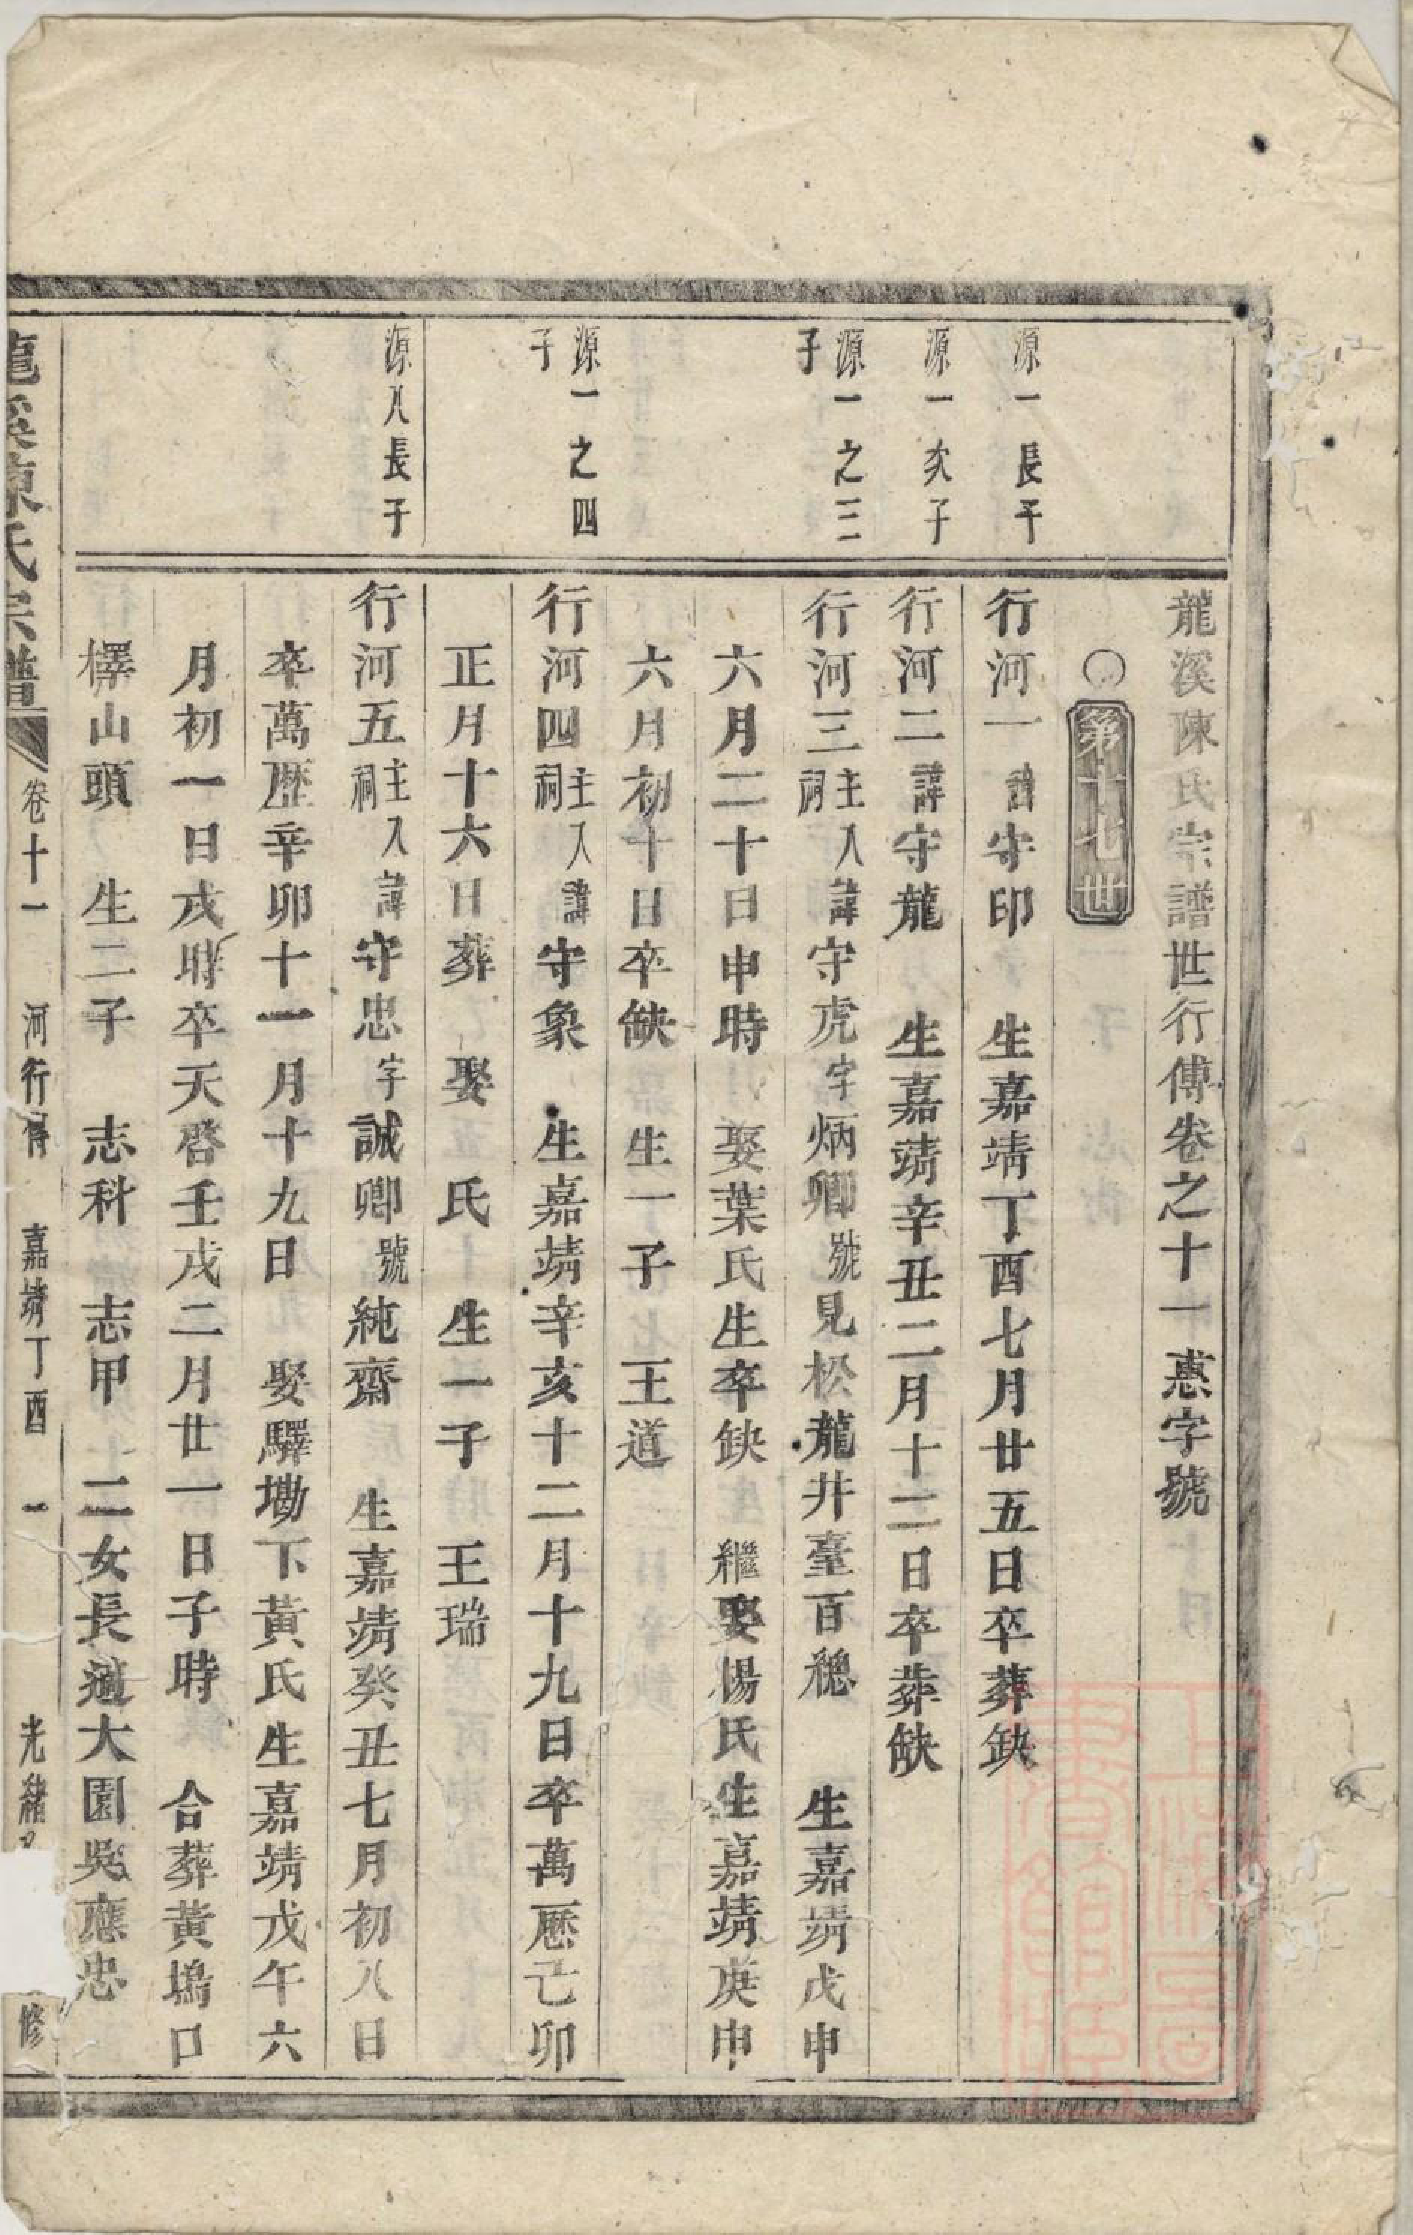 龍溪陳氏宗譜世行傳卷之十一　惠字號
〇第十七世
源一長子
行河一諱守印　生嘉靖丁酉七月廿五日卒葬缺
源一次子
行河二諱守龍　生嘉靖辛丑二月十二日卒葬缺
源一之三子
行河三主入祠諱守虎字炳卿號見松龍井臺百穗　生嘉靖戊申
六月二十日申時　娶葉氏生卒缺　繼娶楊氏生嘉靖庚申
六月初十日卒缺　生一子　王道
源一之四子
行河四主入祠諱守象　生嘉靖辛亥十二月十九日卒萬歷己卯
正月十六日葬　娶　氏　生一子　王瑞
源八長子
行河五主入祠諱守忠字誠卿號純齋　生嘉靖癸丑七月初八日
卒萬歷辛卯十一月十九日　娶驛塘下黃氏生嘉靖戊午六
月初一日戌時卒天啓壬戌二月廿一日子時　合葬黃塢口
檡山頭　生二子　志科　志甲　二女長適大園吳應忠
龍溪陳氏宗譜　卷十一　河行傳　嘉靖丁酉　一　光緒　修
上海圖書館藏